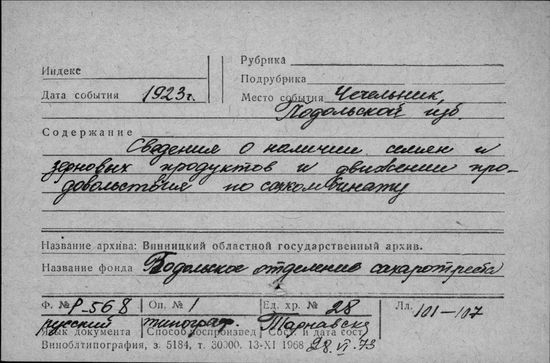 Рубрика
Индекс
Подрубрика
Дата события 1923 г.
Место события Чечельник,
Подольской губ
Содержание
Сведения о наличии семян и
зерновых продуктов и движении про-
довольствия по сахкомбинату
Название архива: Винницкий областной государственный архив.
Название фонда Подольское отделение сахаротреста
Ф. № Р-568 Оп. № 1 Ед. хр. № 28 Лл. 101-107
русский типограф. Тарнавска
Язык документа Способ воспроизвед Сост. и дата сост.
Виноблтипография, з. 5184, т. 30000. 13-XI 1968 28.VI.73